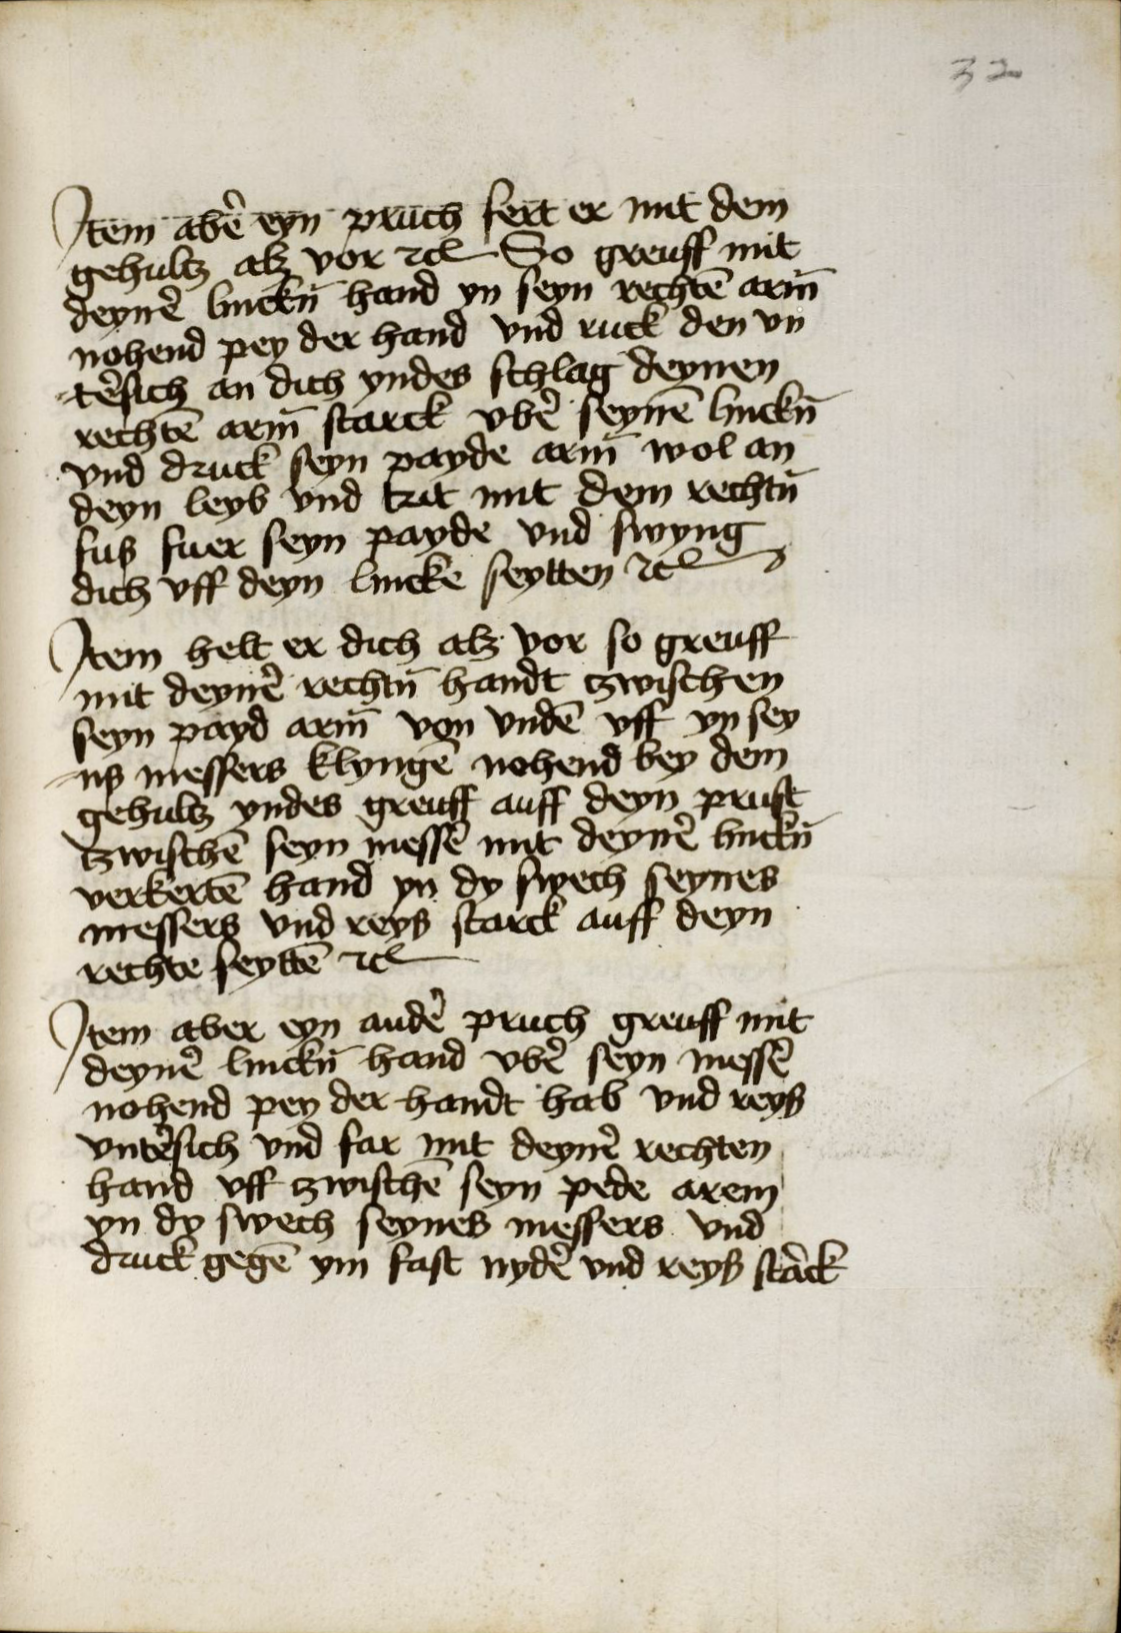 32
Jtem abē eyn pruch fert er mit dem
gehultz alz vor ꝛcͣ So greuff mit
deynē linckn̄ hand yn seyn rechtē arm̄
nohend pey der hand vnd ruck den vn
-tēsich an dich yndes schlag deynen
rechtē arm̄ starck vbē seynē linckn̄
vnd druck seyn payde arm̄ wol an
deyn leyb vnd trit mit dem rechtn̄
fus fuer seyn payde vnd swyng
dich vff deyn lincke seytten ꝛcͣ
Jtem helt er dich alz vor so greuff
mit deynē rechtn̄ handt tzwischen
seyn payd arm̄ von vndē vff yn sey
-ns messers klyngē nohend bey dem
gehultz yndes greuff auff deyn prust
tzwischē seyn messē mit deynē linckn̄
verkertē hand yn dy swech seynes
messers vnd reys starck auff deyn
rechte seyttē ꝛcͣ
Jtem aber eyn andē pruch greuff mit
deynē linckn̄ hand vbē seyn messē
nohend pey der handt hab vnd reys
vntēsich vnd far mit deynē rechten
hand vff tzwischē seyn pede arem
yn dy swech seynes messers vnd
druck gegē ym fast nydē vnd reys stārck